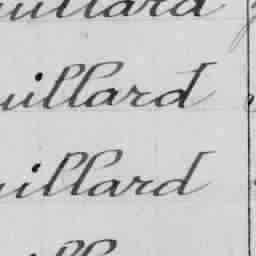 uillard
uillard
uillard